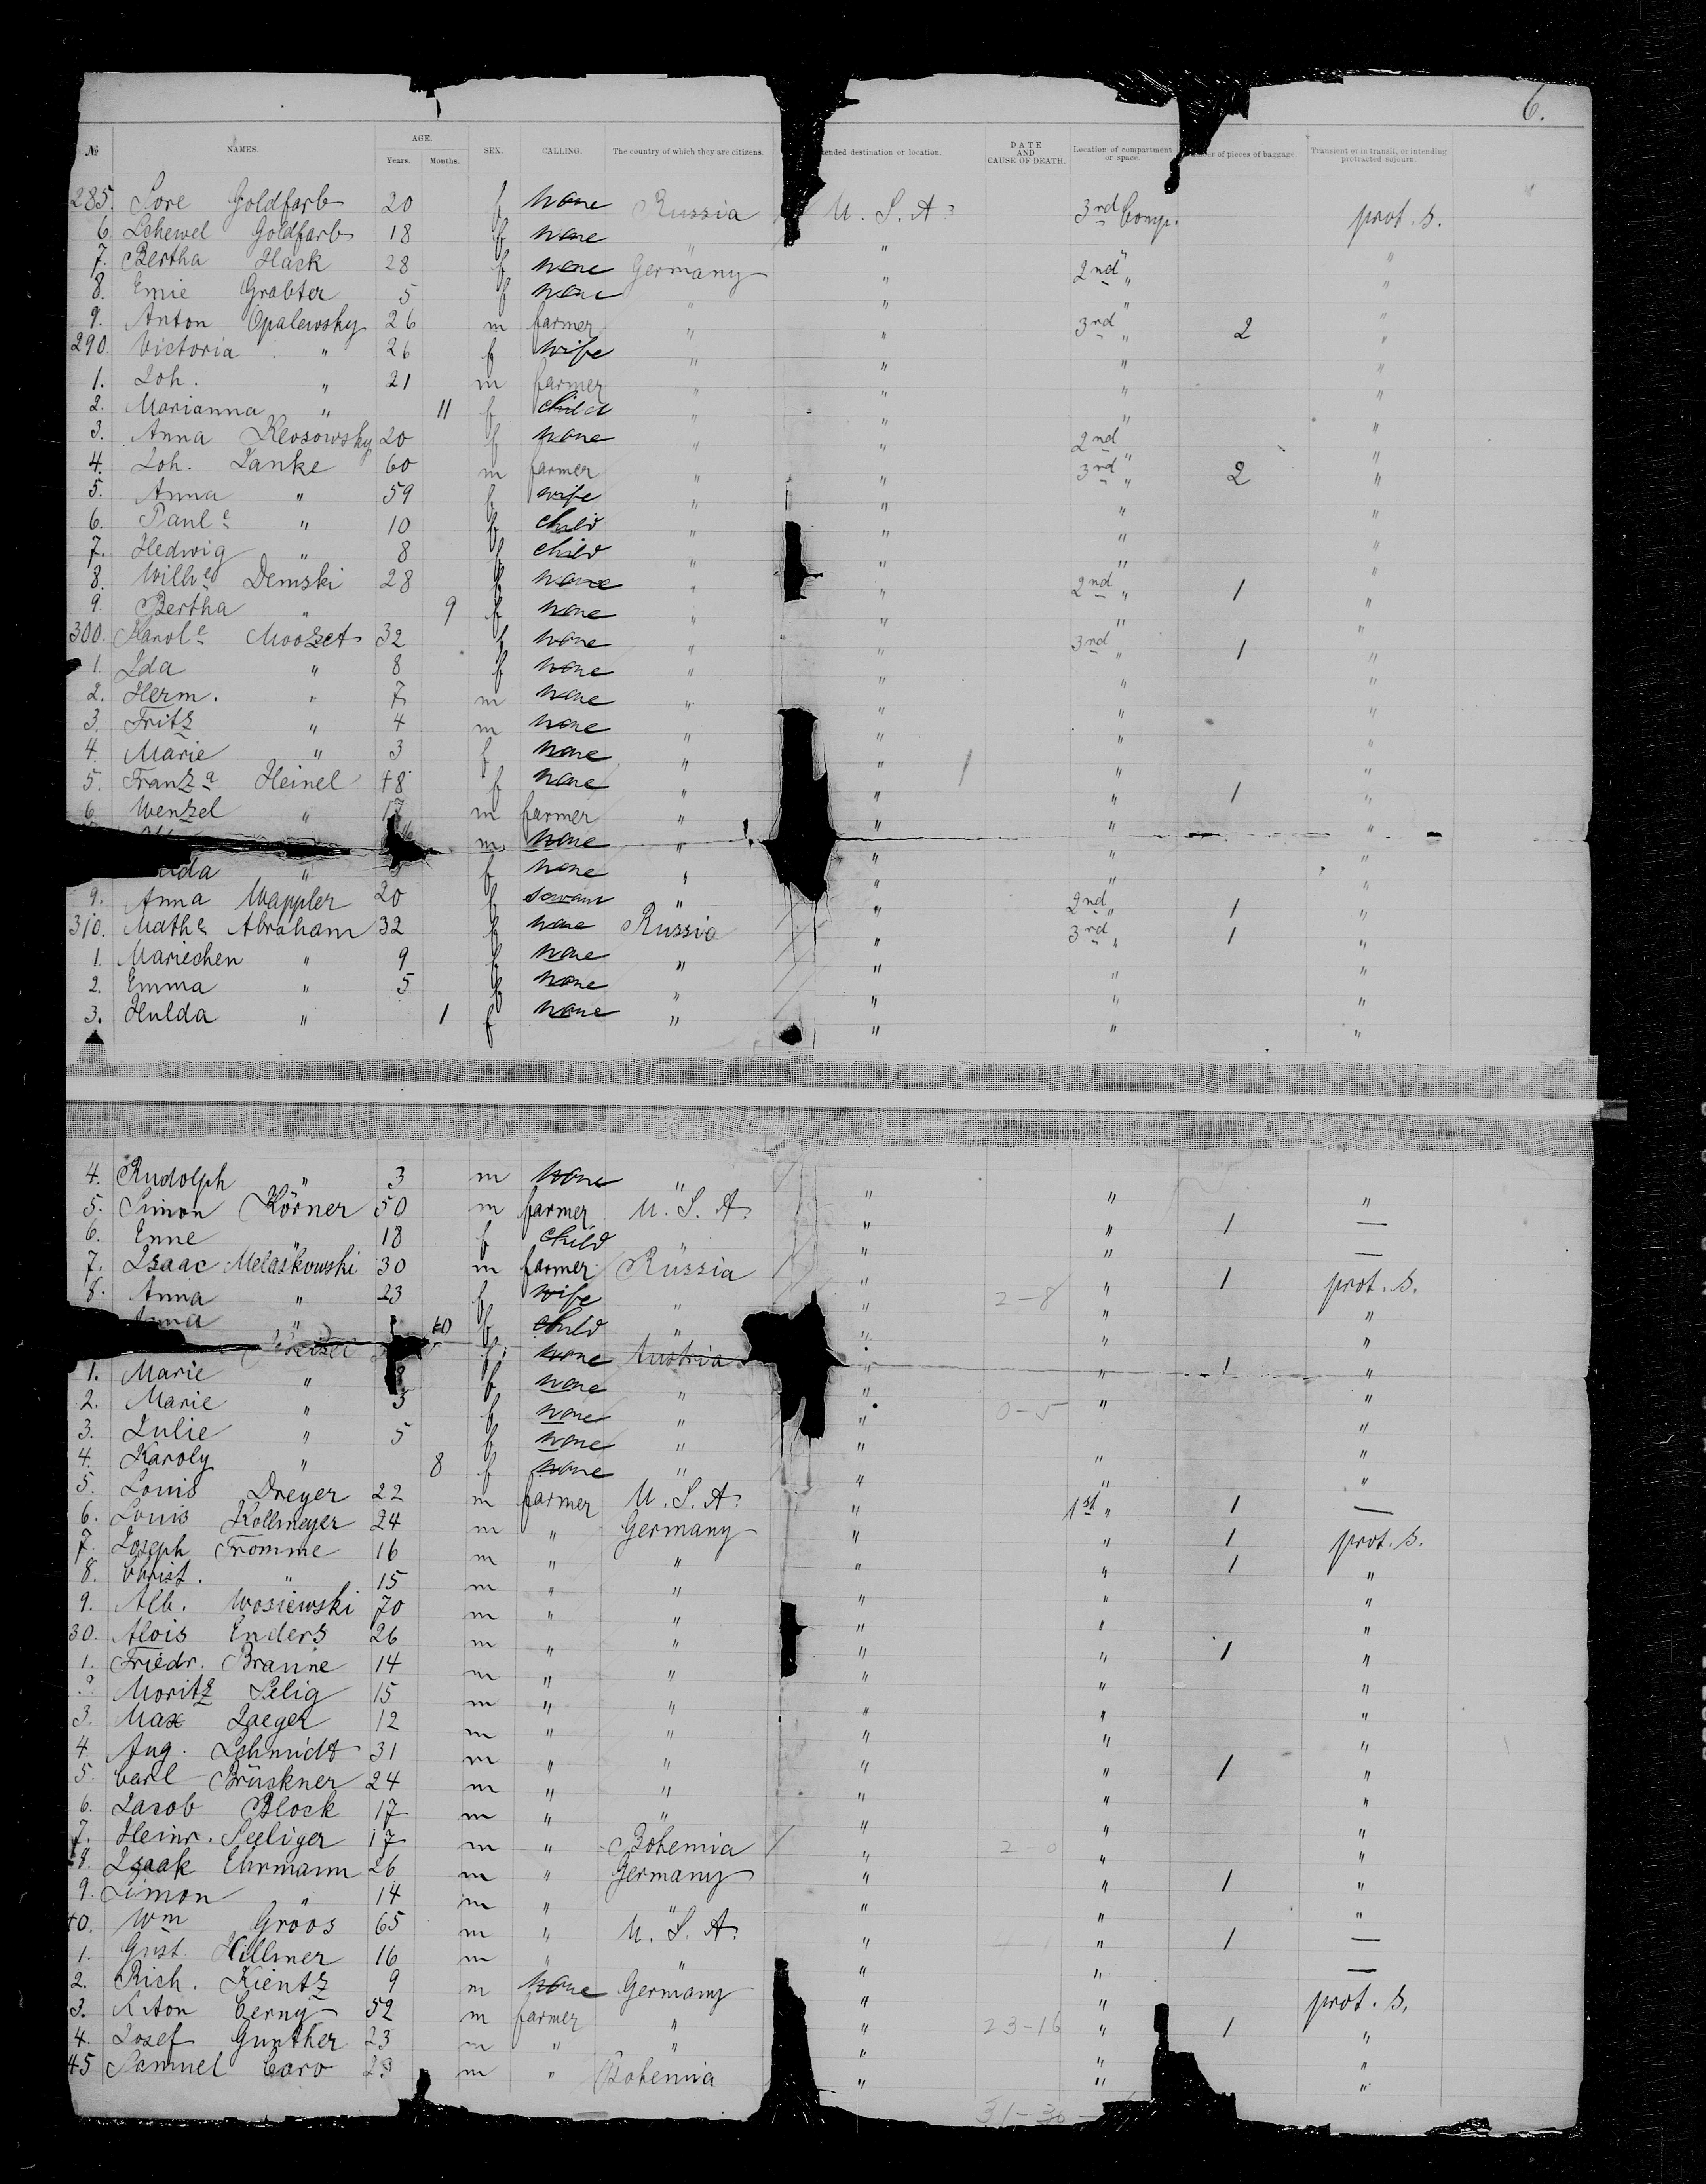 6.
№ NAMES. AGE. Years. Months. SEX. CALLING. The country of which they are citizens. tended destination or location. DATE AND CAUSE OF DEATH. Location of compartment or space. er of pieces of baggage. Transient or in transit, or intending protracted sojourn.
285. Sore Goldfarb 20 f none Russia U. S. A. 3rd Comp. prot. s.
6. Schewel Goldfarb 18 f none " " " "
7. Bertha Hack 28 f none Germany " 2nd " "
8. Emie Grabter 5 f none " " " "
9. Anton Opalewsky 26 m farmer " " 3rd " 2 "
290. Victoria " 26 f wife " " " "
1. Joh. " 21 m farmer " " " "
2. Marianna " 11 f child " " " "
3. Anna Klosowsky 20 f none " " 2nd " "
4. Joh. Janke 60 m farmer " " 3rd " 2 "
5. Anna " 59 f wife " " " "
6. Paule " 10 f child " " " "
7. Hedwig " 8 f child " " " "
8. Wilhe Demski 28 f none " " 2nd " 1 "
9. Bertha " 9 f none " " " "
300. Karole Moozet 32 f none " " 3rd " 1 "
1. Ida " 8 f none " " " "
2. Herm. " 7 m none " " " "
3. Fritz " 4 m none " " " "
4. Marie " 3 f none " " " "
5. Franza Heinel 48 f none " " " 1 "
6. Wenzel " 17 m farmer " " " "
m none " " " "
da " f none " " " "
9. Anna Wappler 20 f servant " " 2nd " 1 "
310. Mathe Abraham 32 f none Russia " 3rd " 1 "
1. Mariechen " 9 f none " " " "
2. Emma " 5 f none " " " "
3. Hulda " 1 f none " " " "
4. Rudolph " 3 m none " " " "
5. Simon Körner 50 m farmer U. S. A. " " 1 —
6. Enne " 18 f child " " " —
7. Isaac Melaskowski 30 m farmer Russia " " 1 prot. s.
8. Anna " 23 f wife " " 2-8 " "
" 10 f child " " " "
f none Austria " " 1 "
1. Marie " 8 f none " " " "
2. Marie " 5 f none " " 0-5 "
3. Julie " 5 f none " " " "
4. Karoly " 8 f none " " " "
5. Louis Dreyer 22 m farmer U. S. A. " 1st " 1 —
6. Louis Kollmeyer 24 m " Germany " " 1 prot. s.
7. Joseph Fromme 16 m " " " " 1 "
8. Christ. " 15 m " " " " "
9. Alb. Wosiewski 70 m " " " " "
30. Alois Enders 26 m " " " " 1 "
1. Friedr. Braune 14 m " " " " "
2. Moritz Selig 15 m " " " " "
3. Max Jaeger 12 m " " " " "
4. Aug. Schmidt 31 m " " " " 1 "
5. Carl Brückner 24 m " " " " "
6. Jacob Block 17 m " " " " "
7. Heinr. Seeliger 17 m " Bohemia " 2-0 " "
8. Isaak Ehrmann 26 m " Germany " " 1 "
9. Simon " 14 m " " " " "
40. Wm Groos 65 m " U. S. A. " " 1 —
1. Gust. Hillmer 16 m " " " " —
2. Rich. Kientz 9 m none Germany " " prot. s.
3. Anton Cerny 52 m farmer " " 23-16 " 1 "
4. Josef Gunther 23 m " " " " "
45 Samuel Caro 23 m " Bohemia " " "
31-30